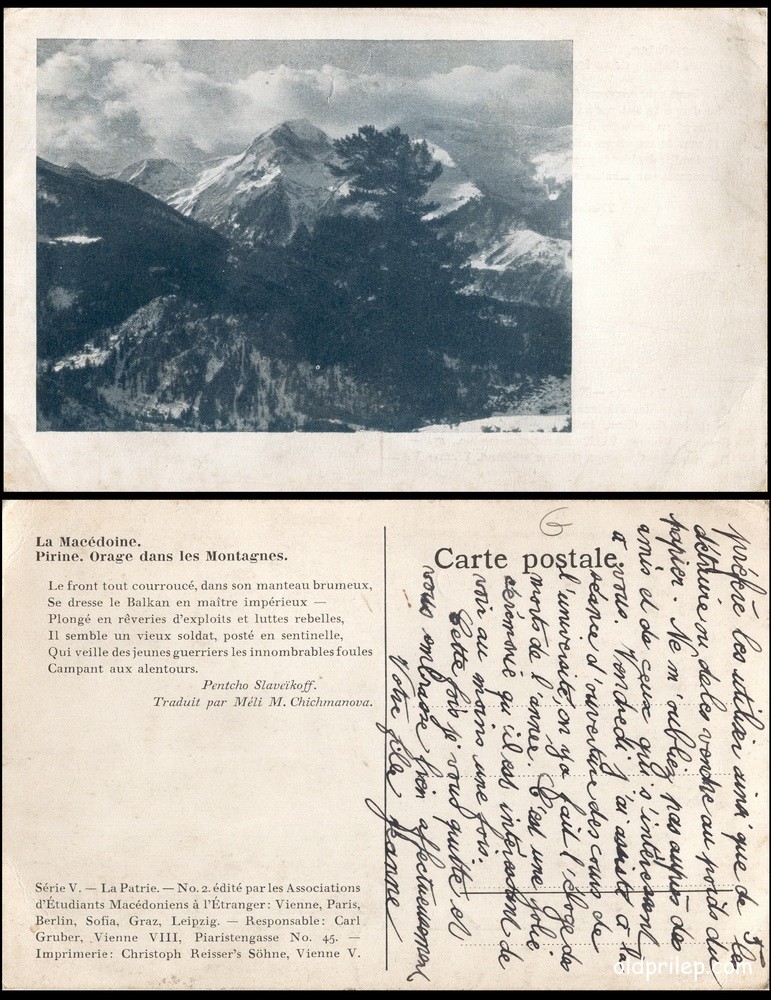 La Macédoine.
Pirine. Orage dans les Montagnes.
Le front tout courroucé, dans son manteau brumeux,
Se dresse le Balkan en maître impérieux —
Plongé en rêveries d'exploits et luttes rebelles,
Il semble un vieux soldat, posté en sentinelle,
Qui veille des jeunes guerriers les innombrables foules
Campant aux alentours.
Pentcho Slaveïkoff.
Traduit par Méli M. Chichmanova.
Série V. — La Patrie. — No. 2. édité par les Associations
d'Étudiants Macédoniens à l'Étranger: Vienne, Paris,
Berlin, Sofia, Graz, Leipzig. — Responsable: Carl
Gruber, Vienne VIII, Piaristengasse No. 45. —
Imprimerie: Christoph Reisser's Söhne, Vienne V.
6
Carte postale
5
préfère les utiliser ainsi que de les
détruire ou de les vendre au poids du
papier. Ne m'oubliez pas auprès des
amis et de ceux qui s'intéressent
à vous. Vendredi j'ai assisté à la
séance d'ouverture des cours de
l'université, on y a fait l'éloge des
morts de l'année. C'est une jolie
cérémonie qu'il est intéressant de
voir au moins une fois.
Cette fois je vous quitte et
vous embrasse bien affectueusement
Votre fille Jeanne
oldprilep.com